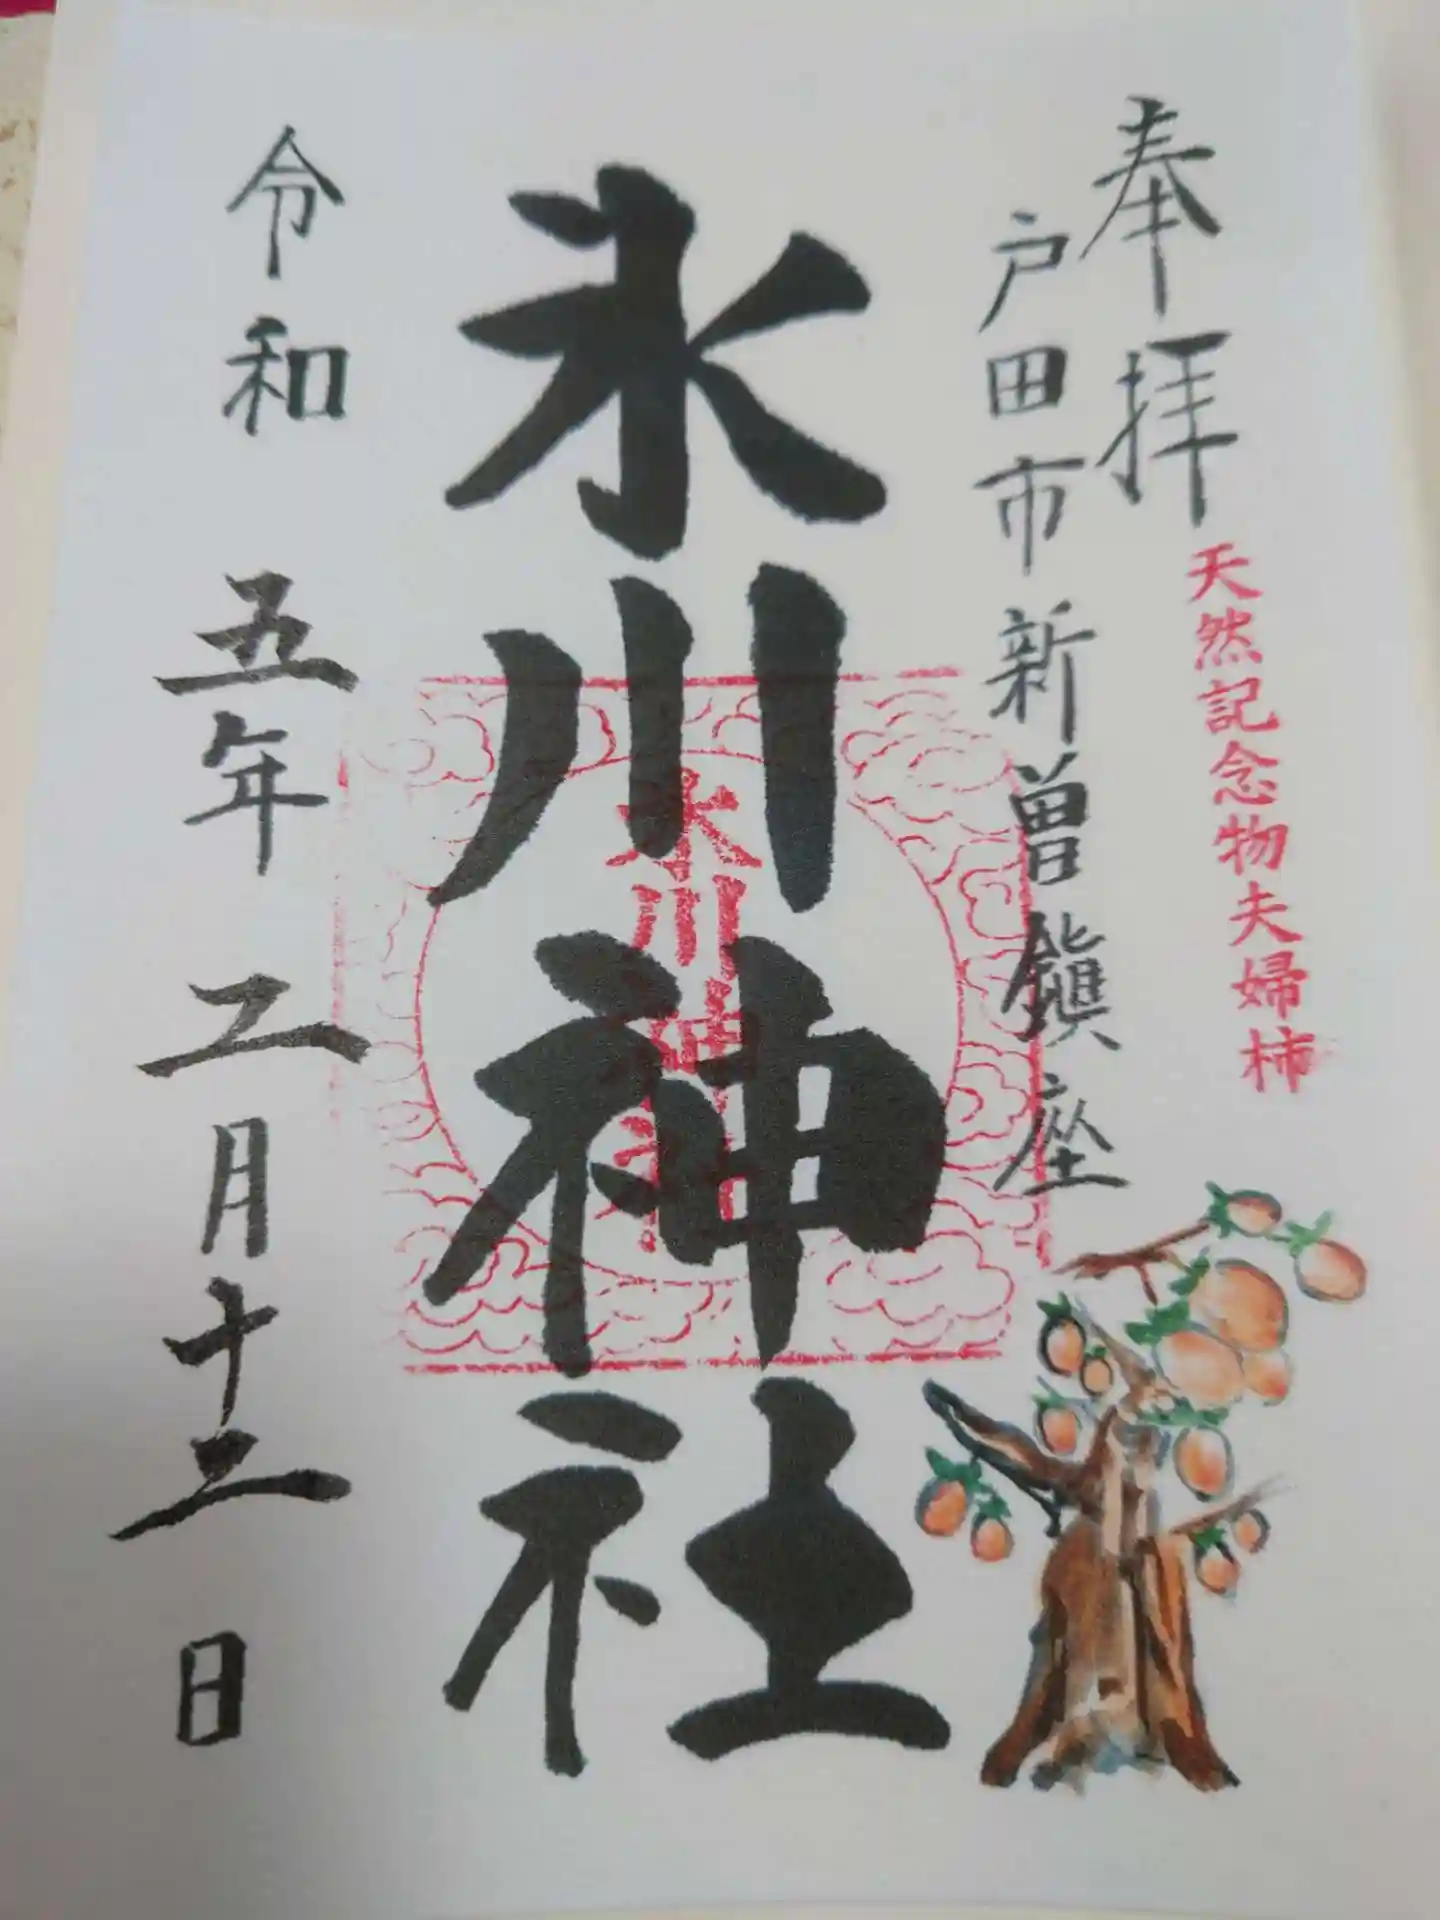 奉拝
天然記念物夫婦柿
戸田市新曽鎮座
氷川神社
氷川神社
令和五年二月十二日